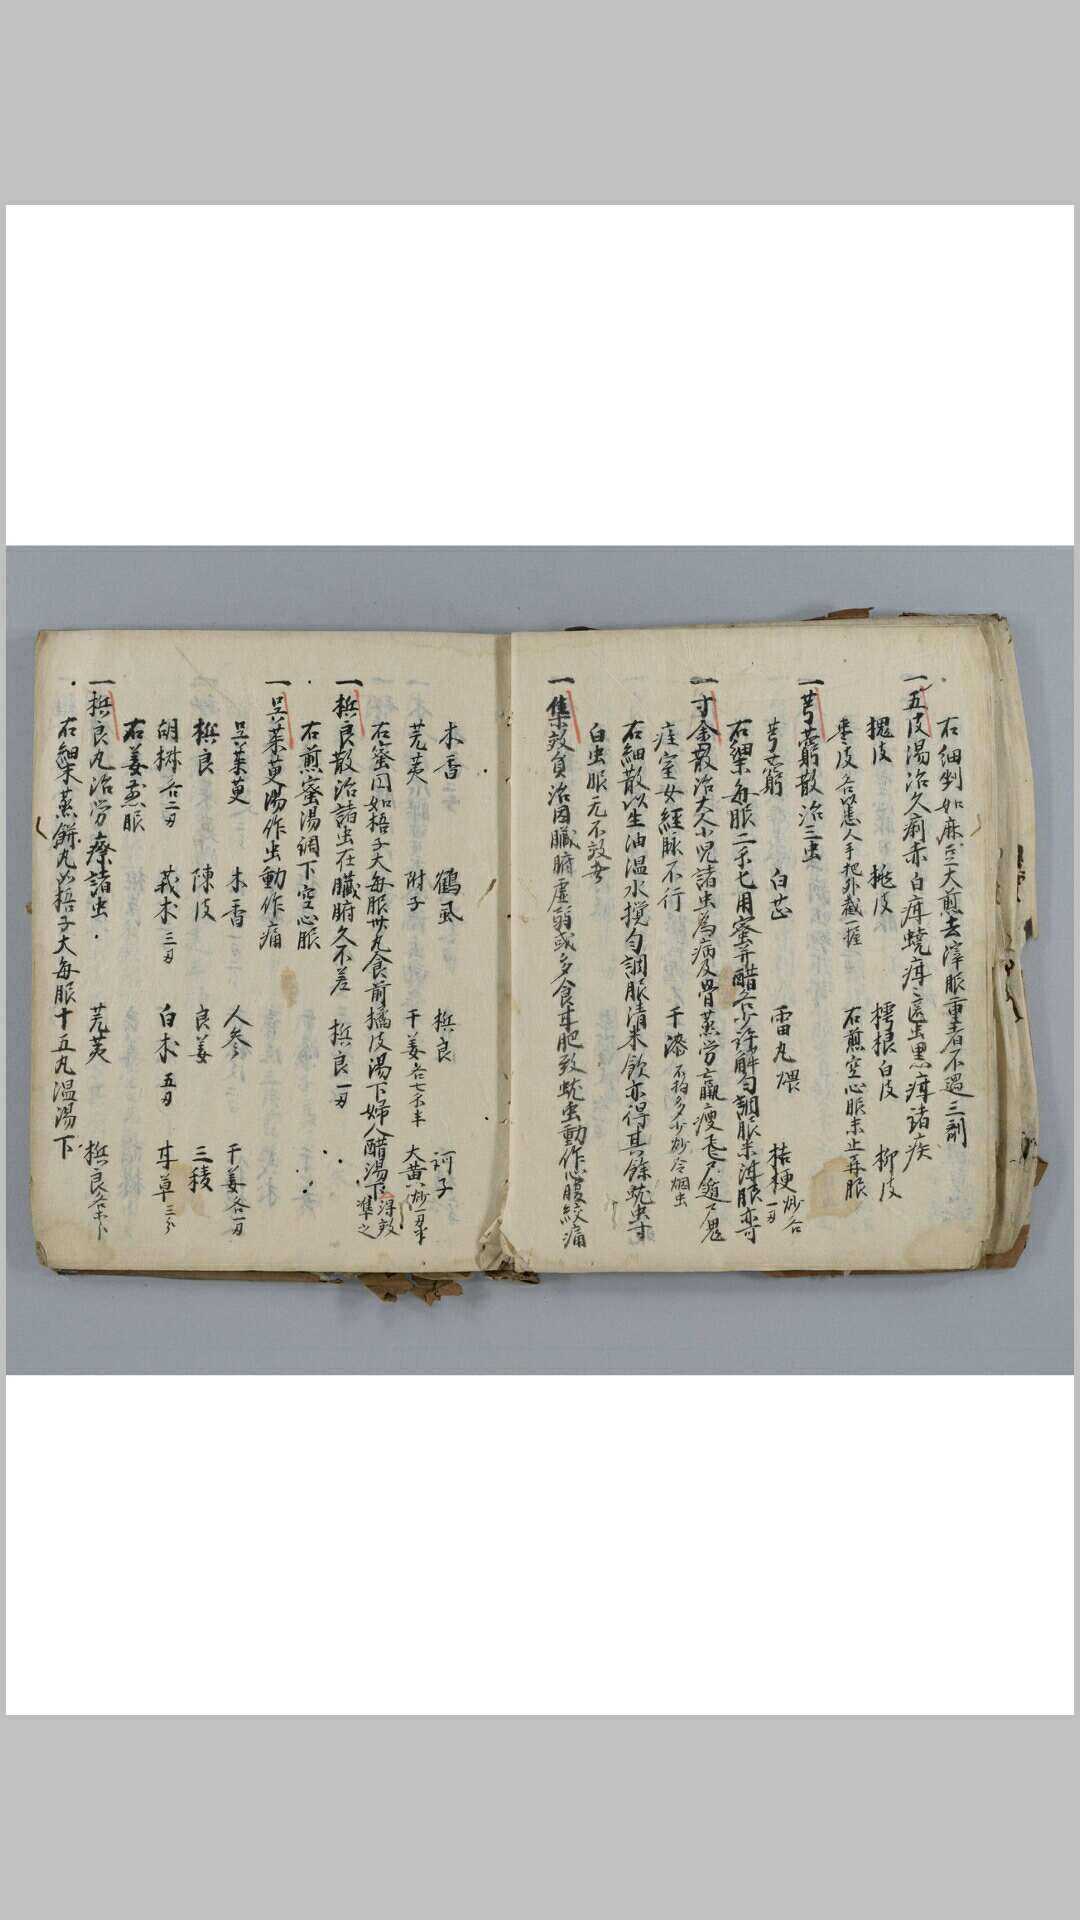 右細剉如麻豆大煎去滓服重者不過三剤
一五皮湯治久痢赤白疰蟯疰𧏾虫黒疰諸疾
槐皮 桃皮 樗根白皮 柳皮
棗皮各以患人手把外截一握 右煎空心服未止再服
一芎藭散治三虫
芎藭 白芷 雷丸煨 桔梗炒各一刄
右細末每服二水七用蜜并醋各少許解勻調服米泔服亦可
一寸金散治大人小児諸虫為病及骨蒸労羸瘦飛尸遁尸鬼
疰室女経脉不行 干漆不拘多少炒令烟出
右細散以生油温水攪勻調服清米飲亦得其餘蚘虫寸
白虫服元不效者
一集效負治因臓腑虚弱或多食甘肥致蚘虫動作心腹絞痛
木香 鶴虱 梹良 訶子
芫荑 附子 干姜各七分半 大黄炒一刄半
右蜜囙如梧子大每服卅丸食前橘皮湯下婦人醋湯下浮效準之
一梹良散治諸虫在臓腑久不差 梹良一刄
右煎蜜湯調下空心服
一呉茱萸湯作虫動作痛
呉茱萸 木香 人参 干姜各一刄
梹良 陳皮 良姜 三稜
胡桝各二刄 莪术三刄 白术五刄 甘草三分
右姜煎服
一梹良丸治労瘵諸虫 芫荑 梹良各
右細末蒸餅丸如梧子大每服十五丸温湯下